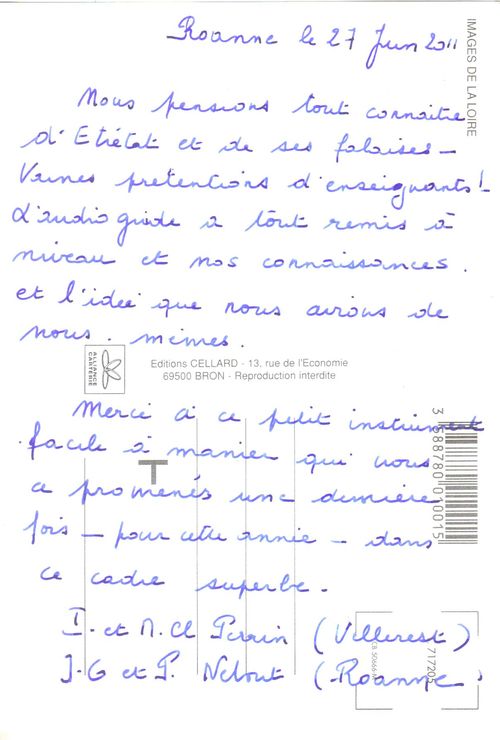 Roanne le 27 Juin 2011
IMAGES DE LA LOIRE
Nous pensions tout connaitre
d'Etretat et de ses falaises -
Vaines pretentions d'enseignants!
L'audio guide a tout remis à
niveau et nos connaissances.
et l'idée que nous avions de
nous. mêmes.
ALLIANCE CARTERIE
Editions CELLARD - 13, rue de l'Economie
69500 BRON - Reproduction interdite
Merci à ce petit instrument
facile à manier qui nous
a promenés une dernière
fois - pour cette année - dans
ce cadre superbe.
T
3 588780 010015
I. et M. Cl Perrin (Villerest)
J-G et P. (Roanne)
717205